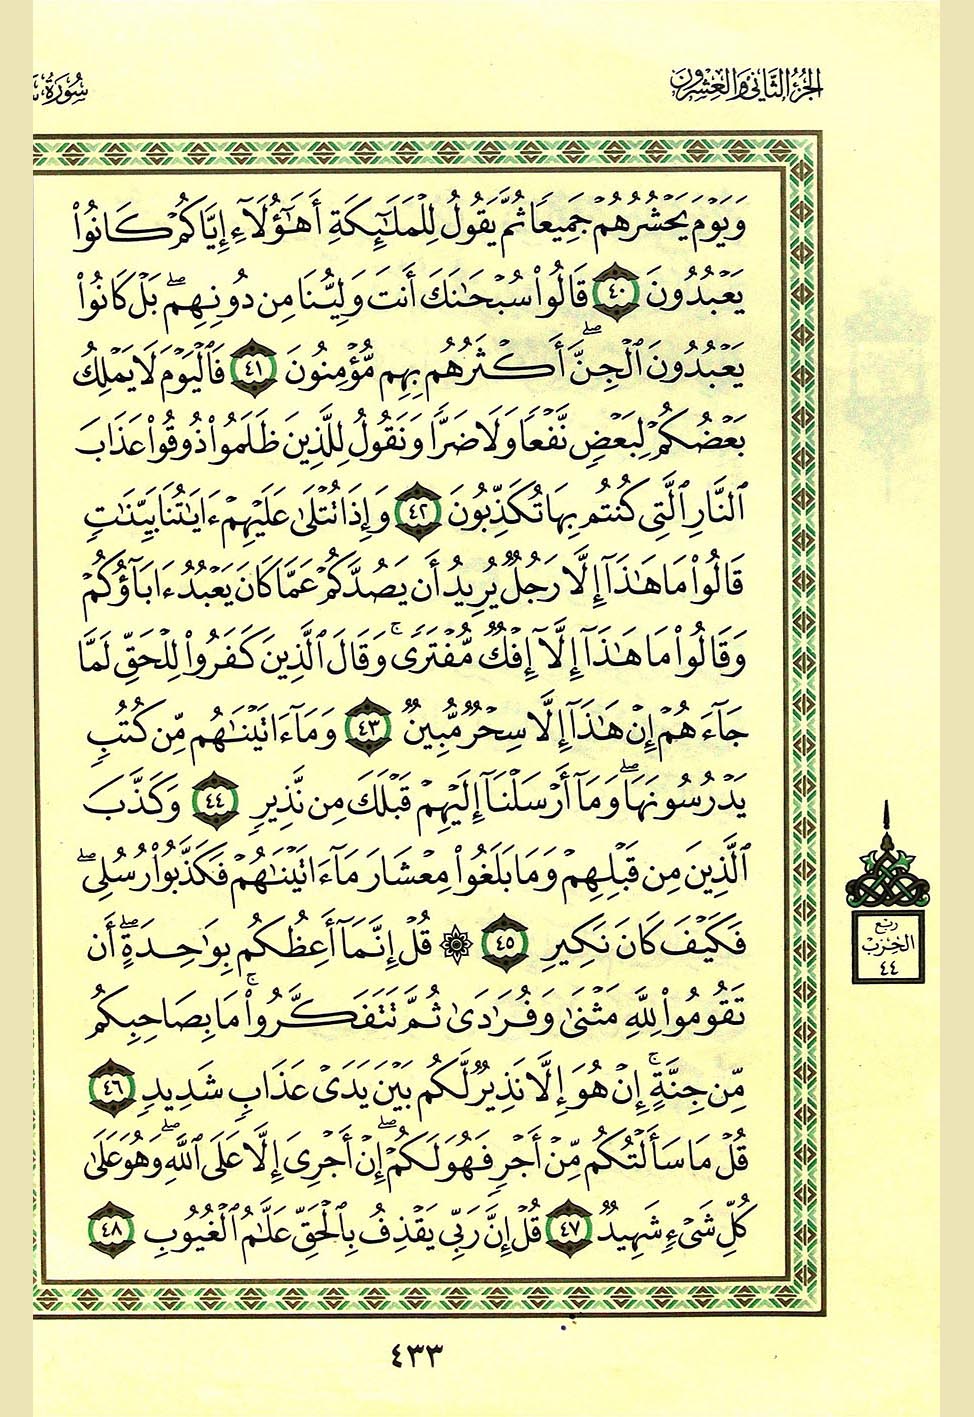 الجزء الثاني والعشرون
سورة
وَيَوْمَ يَحْشُرُهُمْ جَمِيعًا ثُمَّ يَقُولُ لِلْمَلَٰٓئِكَةِ أَهَٰٓؤُلَآءِ إِيَّاكُمْ كَانُوا۟
يَعْبُدُونَ ٤٠ قَالُوا۟ سُبْحَٰنَكَ أَنتَ وَلِيُّنَا مِن دُونِهِمۖ بَلْ كَانُوا۟
يَعْبُدُونَ ٱلْجِنَّۖ أَكْثَرُهُم بِهِم مُّؤْمِنُونَ ٤١ فَٱلْيَوْمَ لَا يَمْلِكُ
بَعْضُكُمْ لِبَعْضٍ نَّفْعًا وَلَا ضَرًّا وَنَقُولُ لِلَّذِينَ ظَلَمُوا۟ ذُوقُوا۟ عَذَابَ
ٱلنَّارِ ٱلَّتِى كُنتُم بِهَا تُكَذِّبُونَ ٤٢ وَإِذَا تُتْلَىٰ عَلَيْهِمْ ءَايَٰتُنَا بَيِّنَٰتٍ
قَالُوا۟ مَا هَٰذَآ إِلَّا رَجُلٌ يُرِيدُ أَن يَصُدَّكُمْ عَمَّا كَانَ يَعْبُدُ ءَابَآؤُكُمْ
وَقَالُوا۟ مَا هَٰذَآ إِلَّآ إِفْكٌ مُّفْتَرًىۚ وَقَالَ ٱلَّذِينَ كَفَرُوا۟ لِلْحَقِّ لَمَّا
جَآءَهُمْ إِنْ هَٰذَآ إِلَّا سِحْرٌ مُّبِينٌ ٤٣ وَمَآ ءَاتَيْنَٰهُم مِّن كُتُبٍ
يَدْرُسُونَهَاۖ وَمَآ أَرْسَلْنَآ إِلَيْهِمْ قَبْلَكَ مِن نَّذِيرٍ ٤٤ وَكَذَّبَ
ٱلَّذِينَ مِن قَبْلِهِمْ وَمَا بَلَغُوا۟ مِعْشَارَ مَآ ءَاتَيْنَٰهُمْ فَكَذَّبُوا۟ رُسُلِىۖ
فَكَيْفَ كَانَ نَكِيرِ ٤٥ ۞ قُلْ إِنَّمَآ أَعِظُكُم بِوَٰحِدَةٍۖ أَن
تَقُومُوا۟ لِلَّهِ مَثْنَىٰ وَفُرَٰدَىٰ ثُمَّ تَتَفَكَّرُوا۟ۚ مَا بِصَاحِبِكُم
مِّن جِنَّةٍۚ إِنْ هُوَ إِلَّا نَذِيرٌ لَّكُم بَيْنَ يَدَىْ عَذَابٍ شَدِيدٍ ٤٦
قُلْ مَا سَأَلْتُكُم مِّنْ أَجْرٍ فَهُوَ لَكُمْۖ إِنْ أَجْرِىَ إِلَّا عَلَى ٱللَّهِۖ وَهُوَ عَلَىٰ
كُلِّ شَىْءٍ شَهِيدٌ ٤٧ قُلْ إِنَّ رَبِّى يَقْذِفُ بِٱلْحَقِّ عَلَّٰمُ ٱلْغُيُوبِ ٤٨
ربع
الحزب
٤٤
٤٣٣